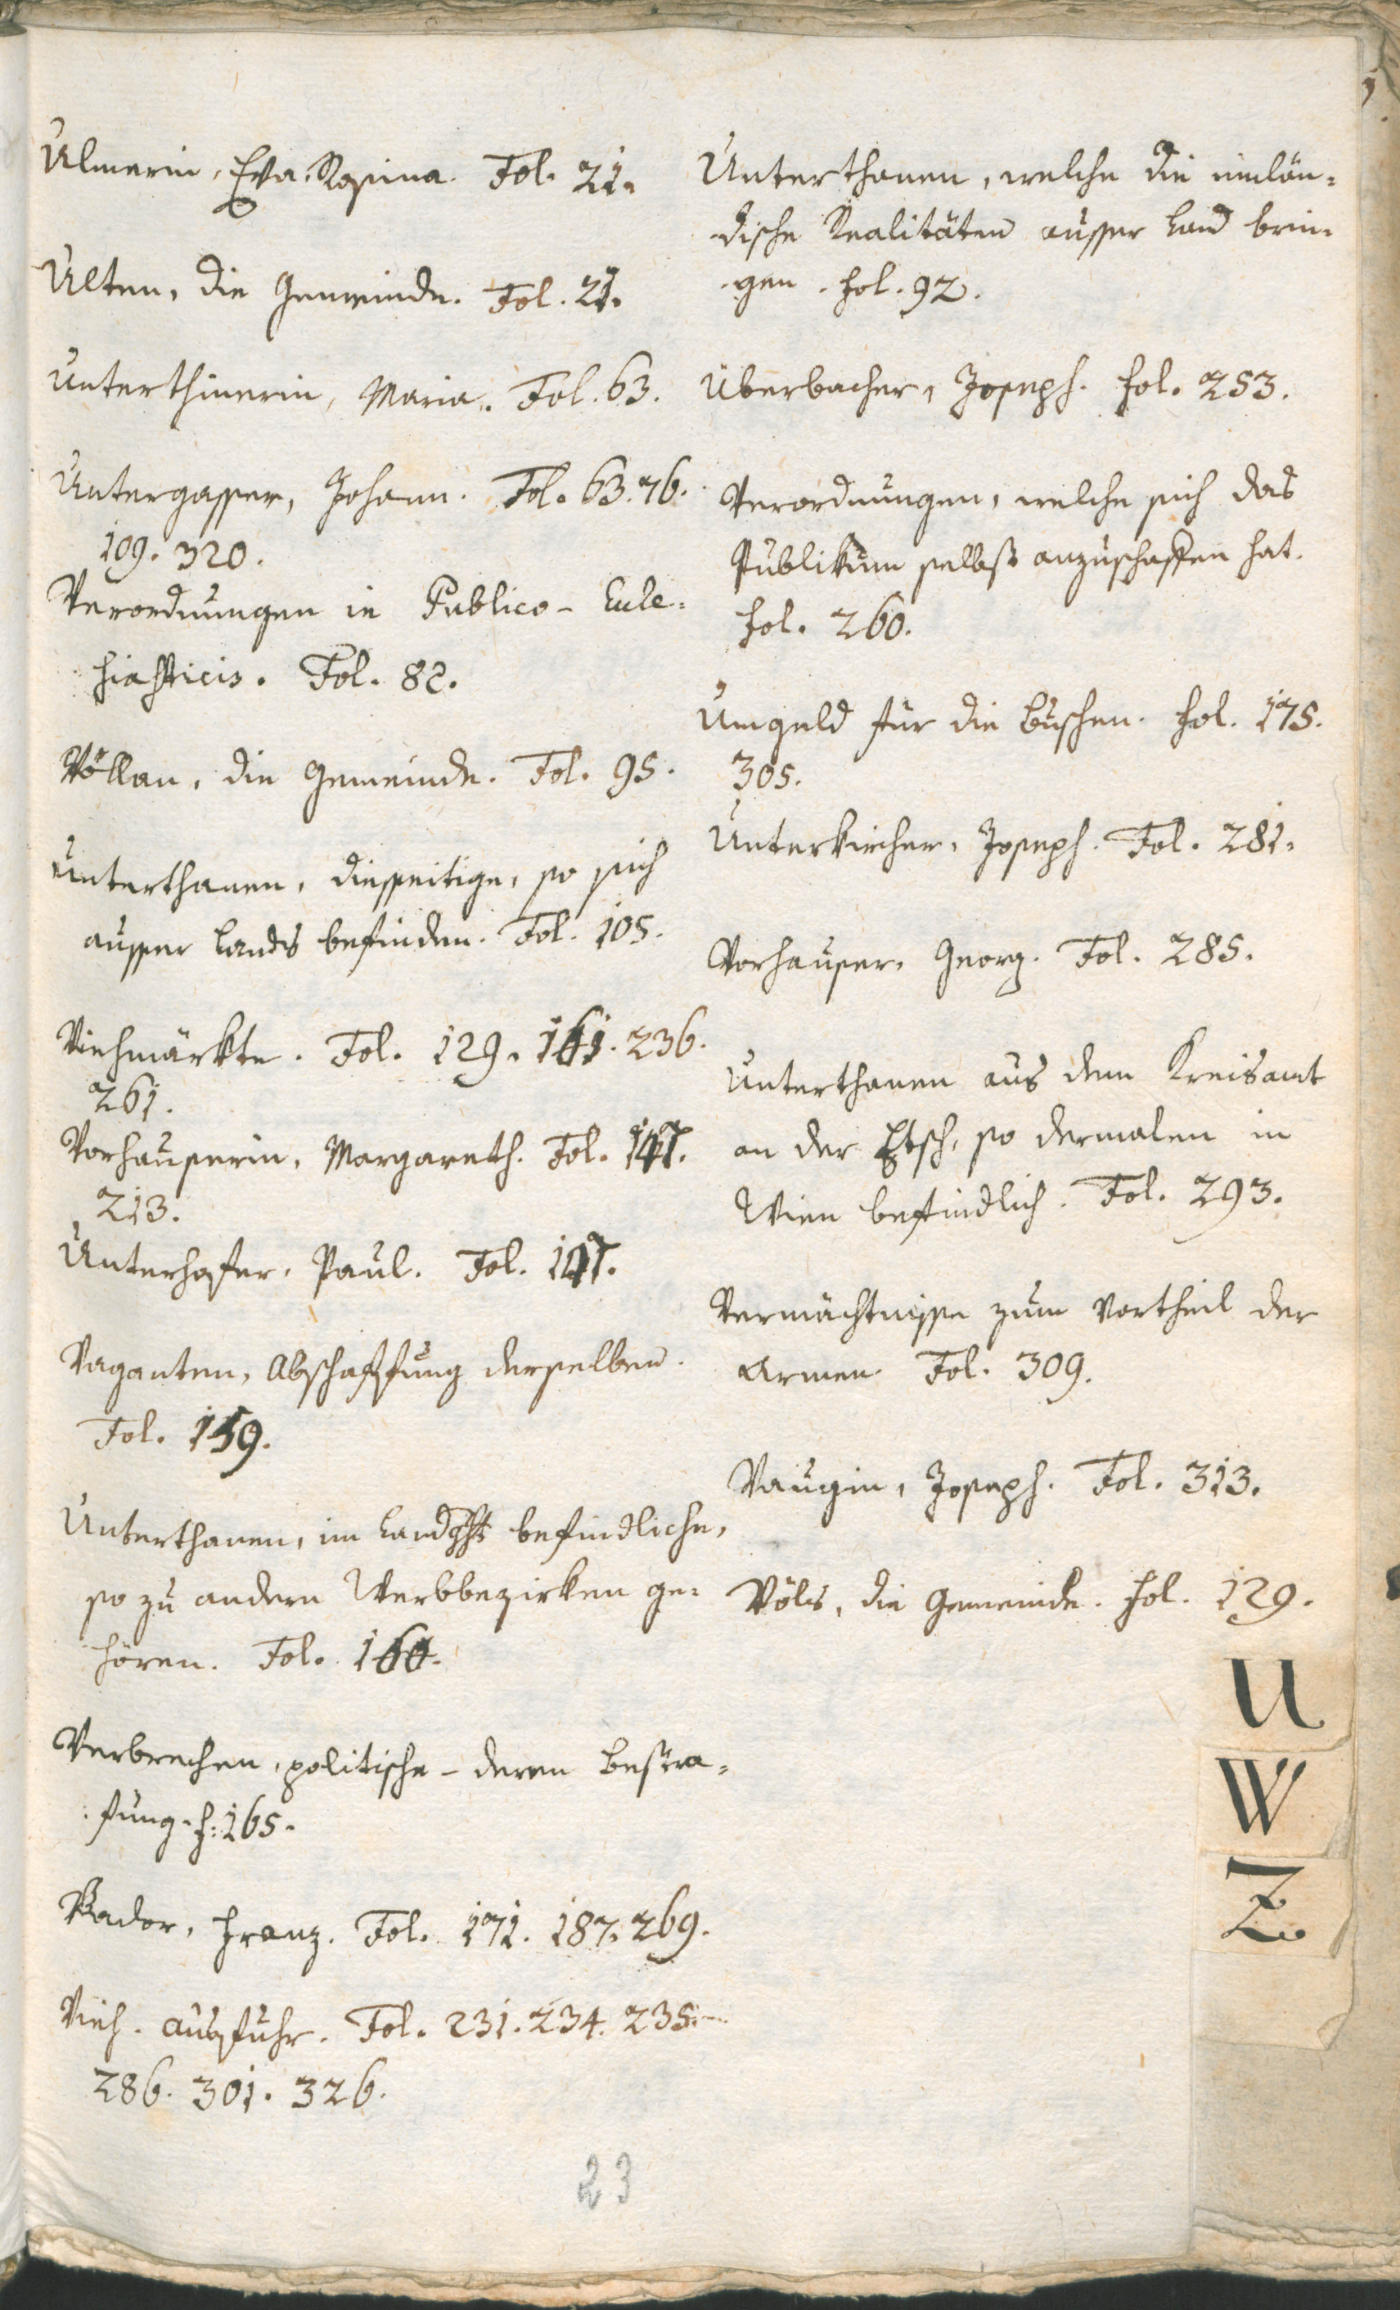 Ulmerin, Eva Rosina. Fol. 21.
Ulten, die Gemeinde. Fol. 21.
Unterthinerin, Maria. Fol. 63.
Untergasser, Johann. Fol. 63. 76.
109. 320.
Verordnungen in Publico-Eccle-
siasticis. Fol. 82.
Völlan, die Gemeinde. Fol. 95.
Unterthanen, diesseitige, so sich
ausser Lands befinden. Fol. 105.
Viehmärkte. Fol. 129. 161. 236.
261.
Vorhauserin, Margareth. Fol. 147.
213.
Unterhofer, Paul. Fol. 147.
Vaganten, Abschaffung derselben.
Fol. 159.
Unterthanen, im Landght befindliche,
so zu andern Werbbezirken ge-
hören. Fol. 160.
Verbrechen, politische - deren Bestra-
fung. f: 165.
Vador, Franz. Fol. 171. 187. 269.
Vieh-Ausfuhr. Fol. 231. 234. 235.
286. 301. 326.
Unterthanen, welche die innlän-
dische Realitäten ausser Land brin-
gen. fol. 92.
Überbacher, Joseph. fol. 253.
Verordnungen, welche sich das
Publikum selbst anzuschaffen hat.
fol. 260.
Umgeld für die Buschen. fol. 175.
305.
Unterkircher, Joseph. Fol. 281.
Vorhauser, Georg. Fol. 285.
Unterthanen aus dem Kreisamt
an der Etsch, so dermalen in
Wien befindlich. Fol. 293.
Vermächtnisse zum Vortheil der
Armen. Fol. 309.
Vaugin, Joseph. Fol. 313.
Völs, die Gemeinde. fol. 129.
U
W
Z.
23